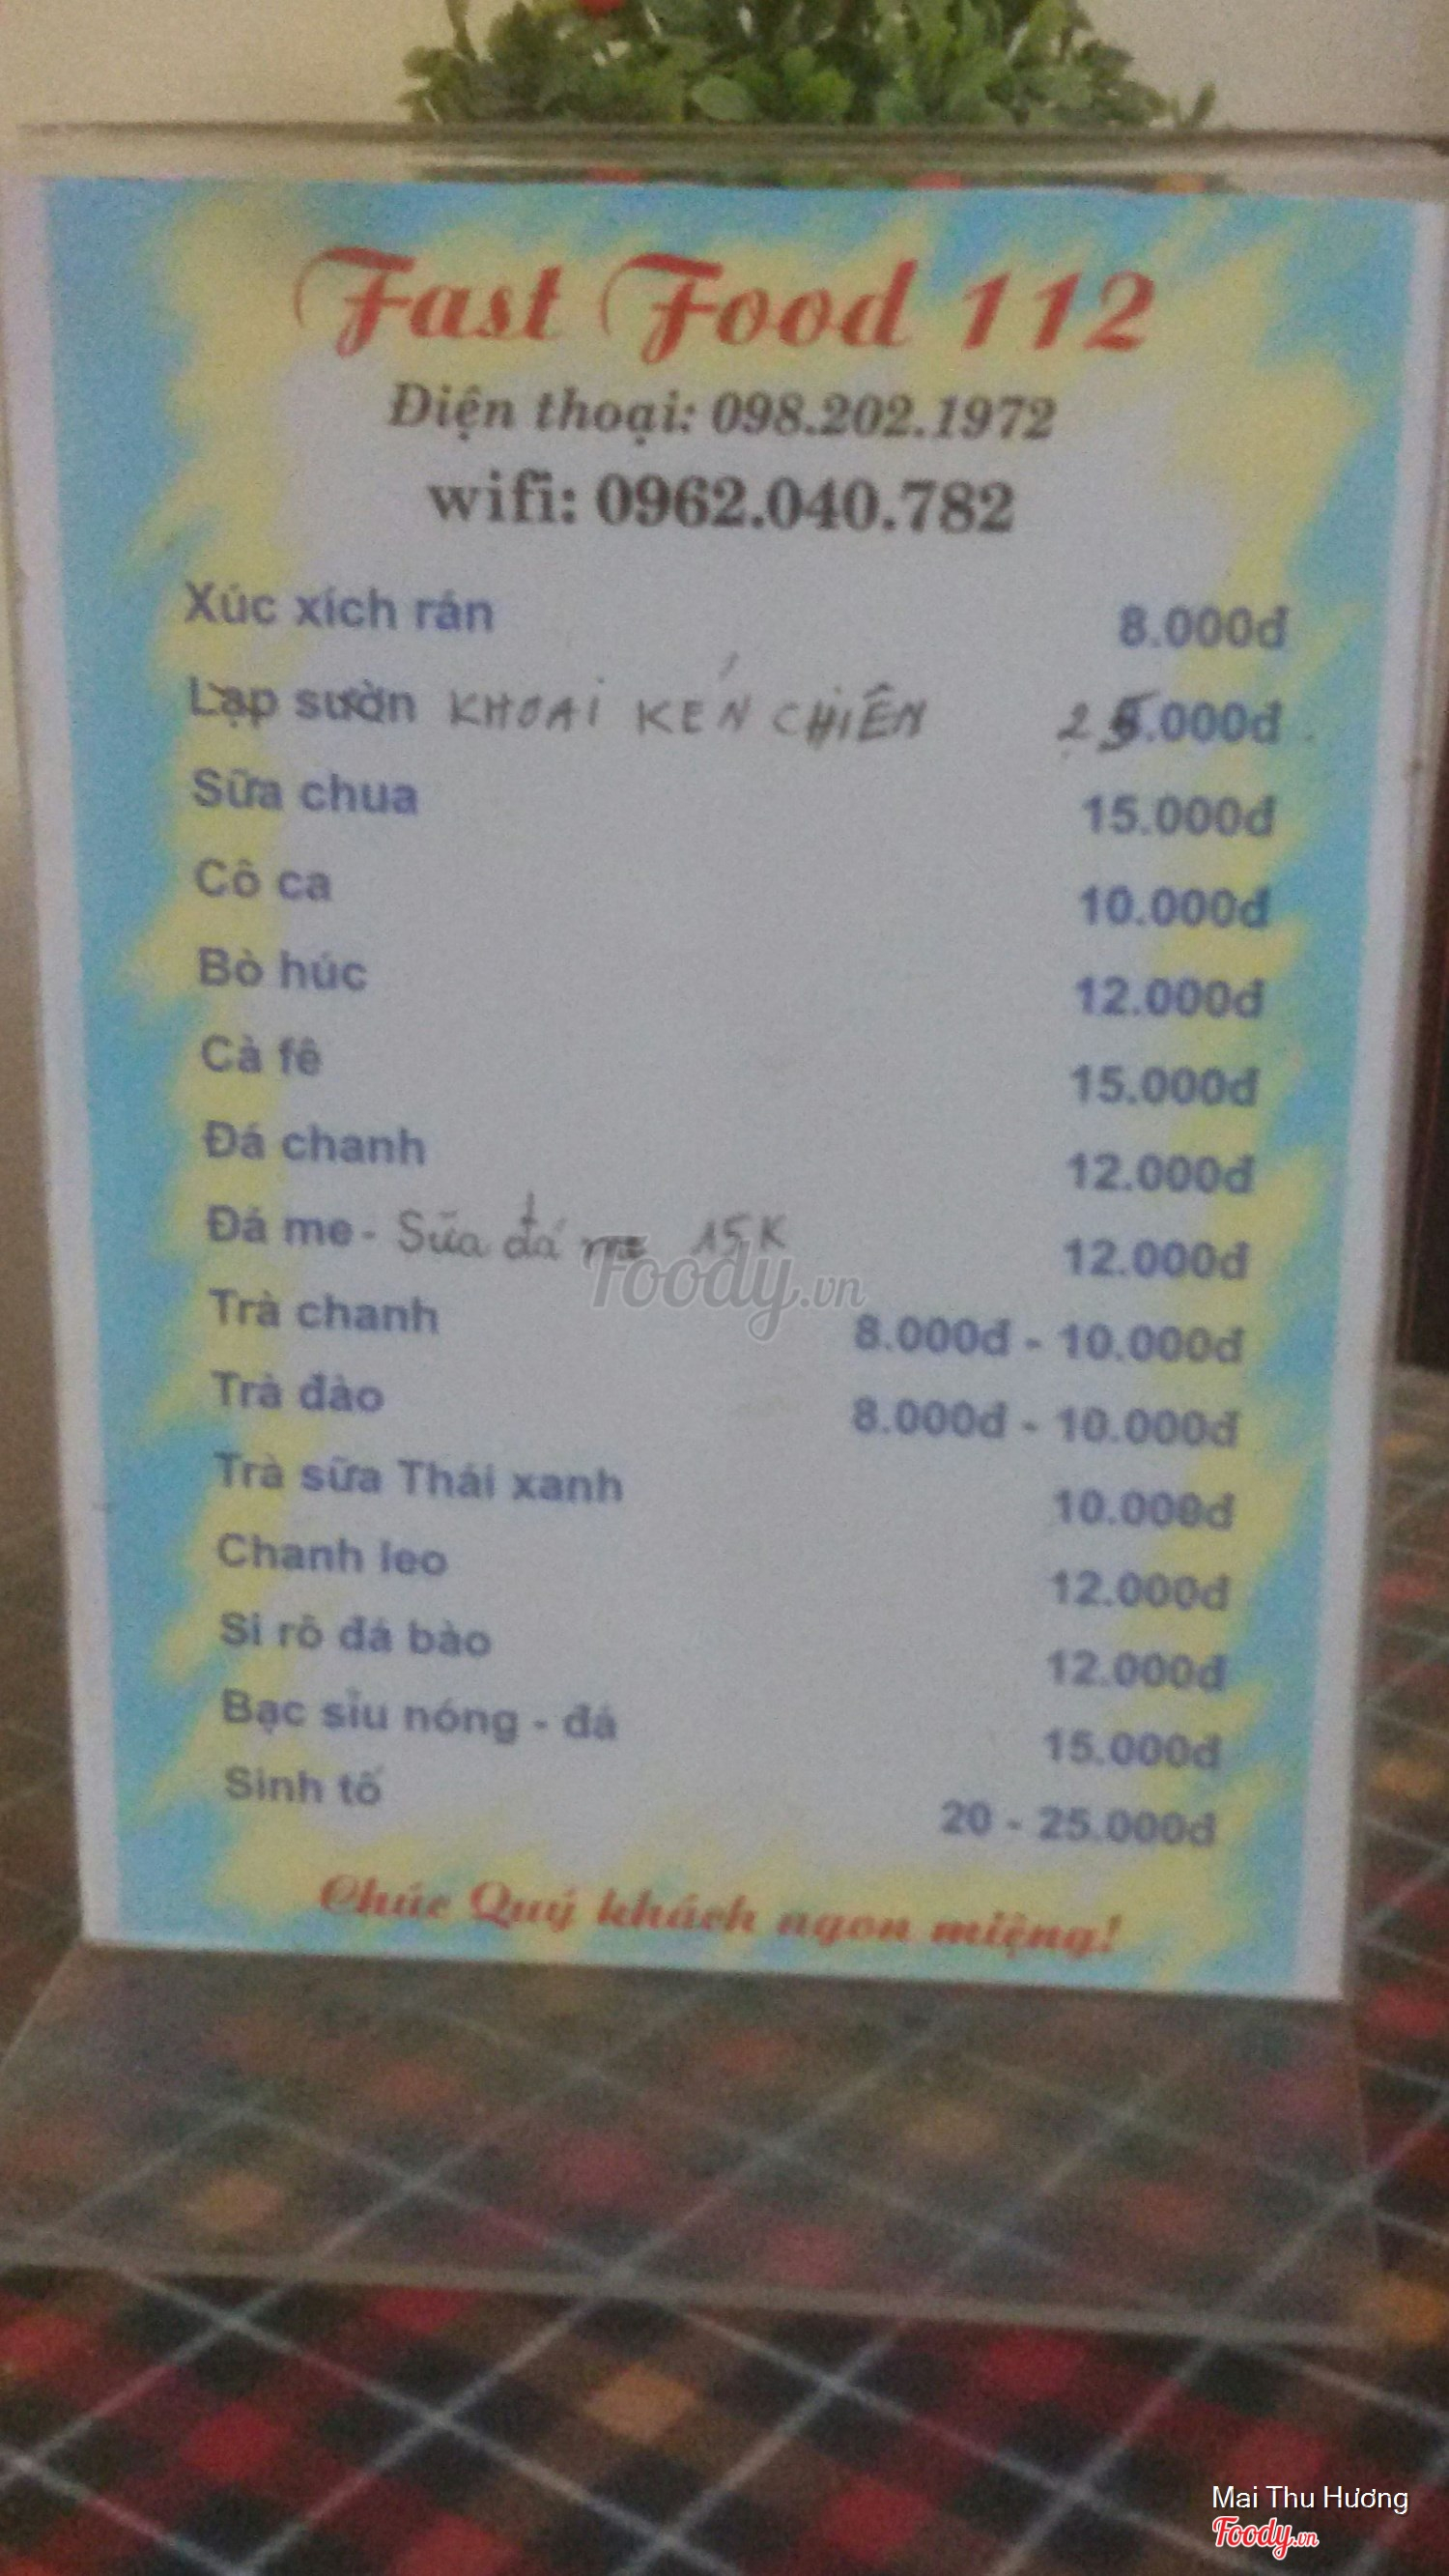 Fast Food 112
Điện thoại: 098.202.1972
wifi: 0962.040.782
Xúc xích rán 8.000đ
Lạp sườn KHOAI KÉN CHIÊN 25.000đ
Sữa chua 15.000đ
Cô ca 10.000đ
Bò húc 12.000đ
Cà fê 15.000đ
Đá chanh 12.000đ
Đá me - Sữa đá me 15K 12.000đ
Trà chanh 8.000đ - 10.000đ
Trà đào 8.000đ - 10.000đ
Trà sữa Thái xanh 10.000đ
Chanh leo 12.000đ
Si rô đá bào 12.000đ
Bạc sỉu nóng - đá 15.000đ
Sinh tố 20 - 25.000đ
Chúc Quý khách ngon miệng!
Foody.vn
Mai Thu Hương
Foody.vn